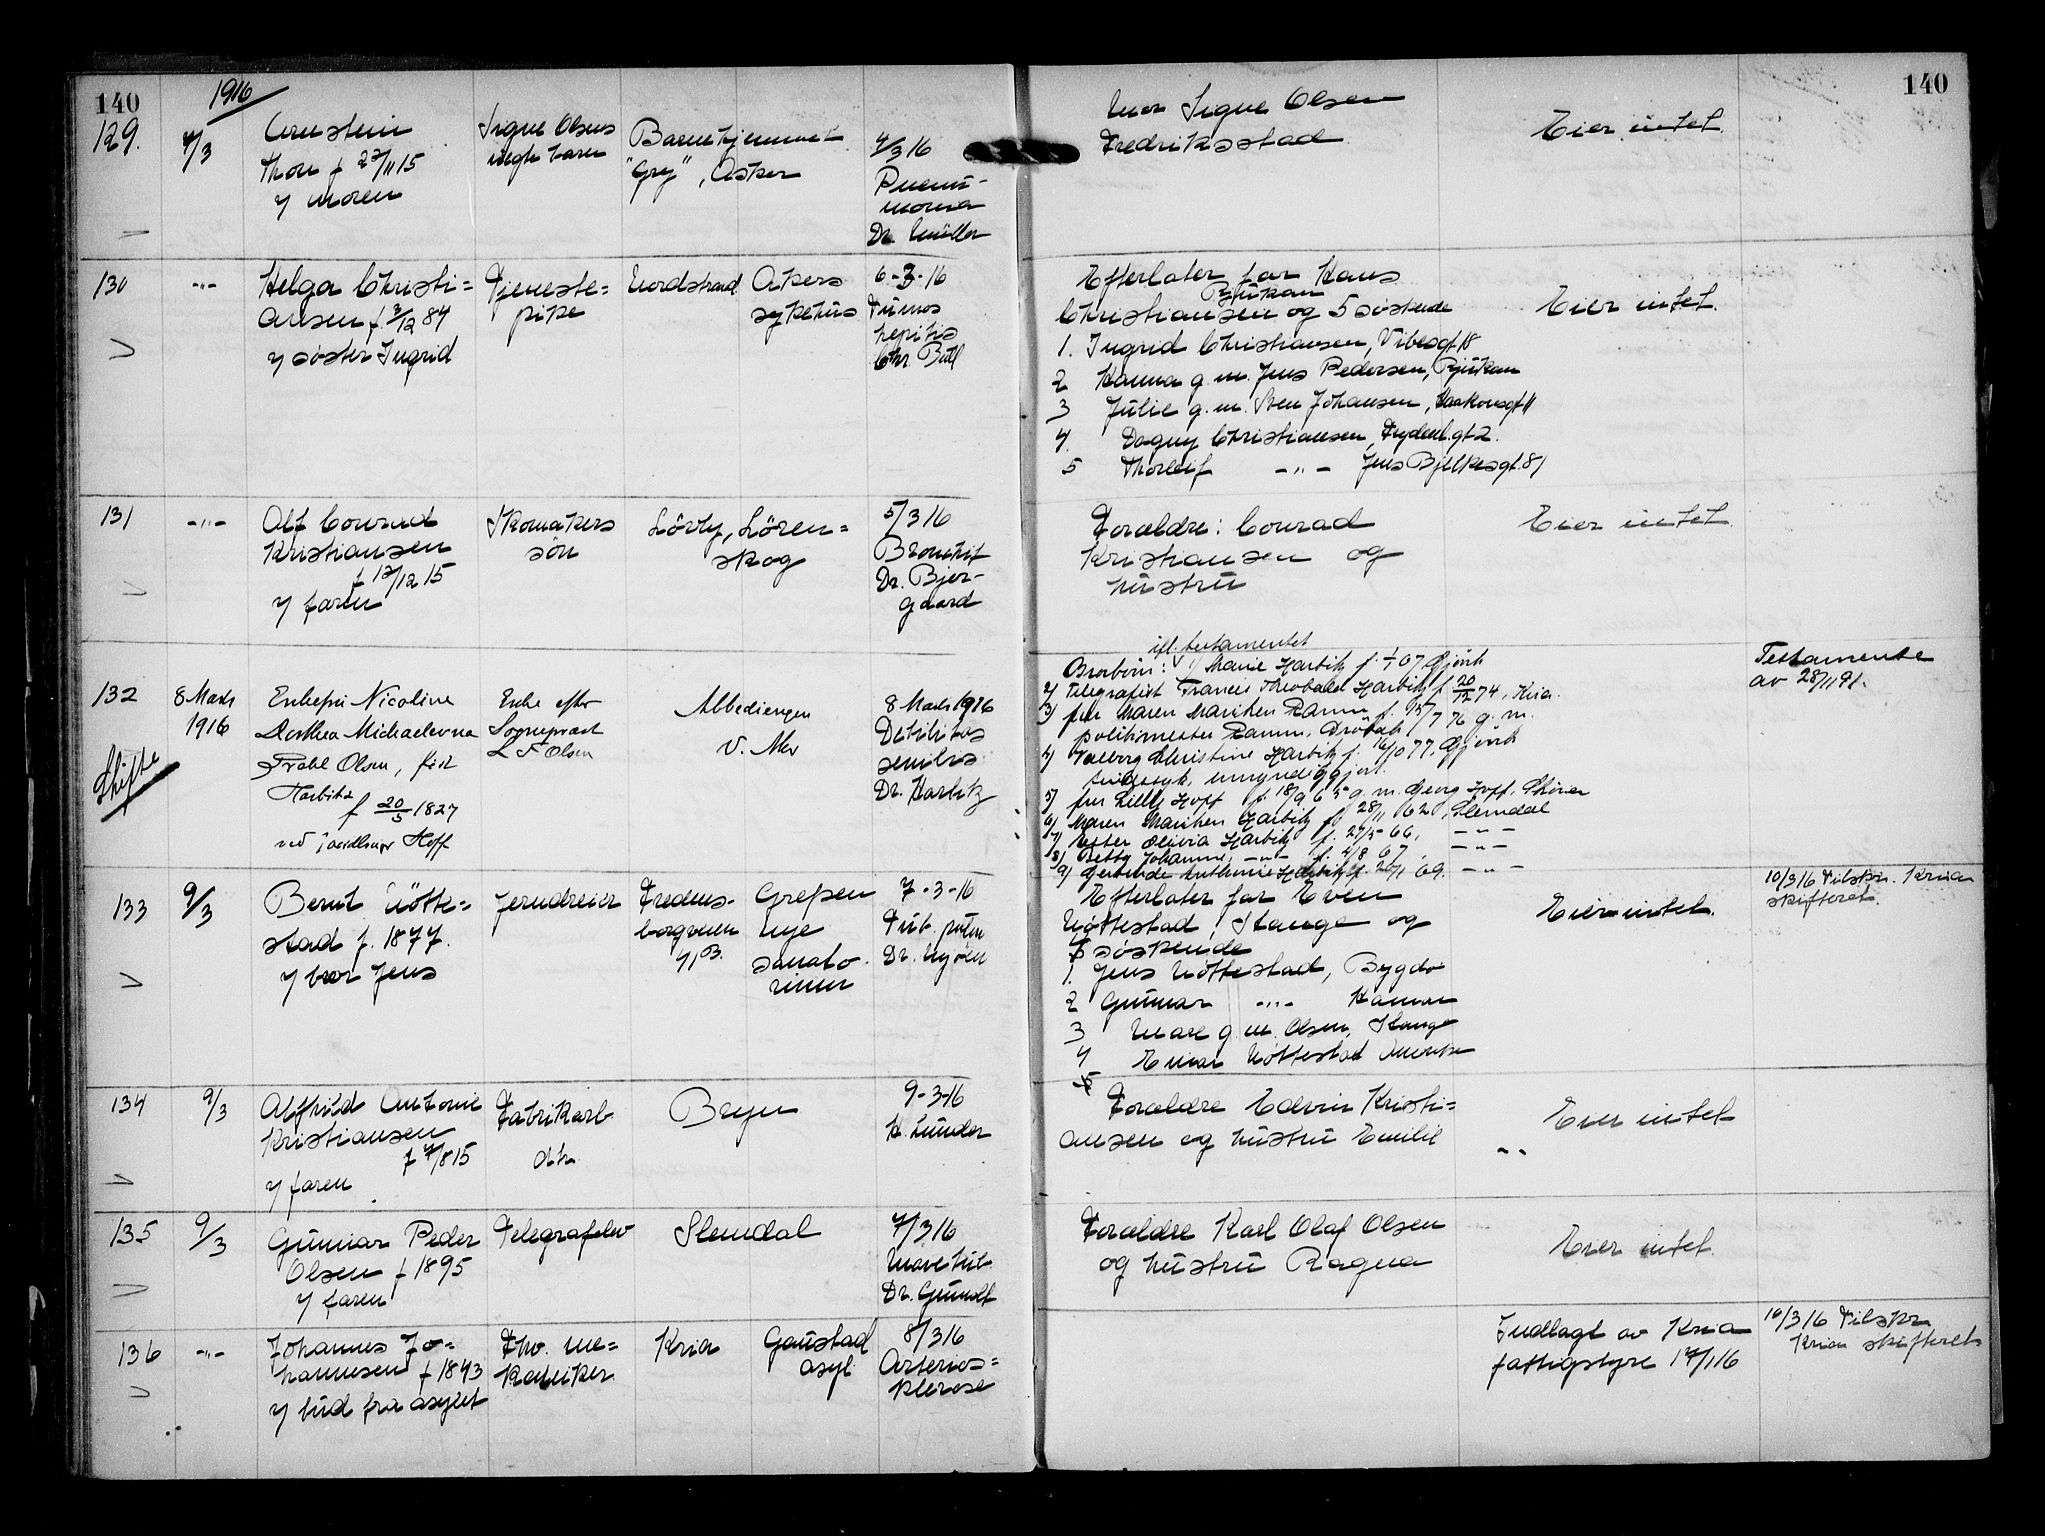 140
1916
129.
4/3
Arnstein
Thon f 27/11 15
y moren
Signe Olsens
uegte barn
Barnehjemmet
"Gry", Asker
4/3 16
Pneumonia
Dr. Müller
Mor Signe Olsen
Fredriksstad
Eier intet.
140
130
-"-
Helga Christi=
ansen f 3/12 84
y søster Ingrid
Tjeneste=
pike
Nordstrand
Akers
sykehus
6-3-16
Tumos
hepitis
Chr. Bull
Efterlater far Hans
Rjukan
Christiansen og 5 søskende
1. Ingrid Christiansen, Vibesgt 18
2 Hanna g. m. Jens Pedersen, Rjukan
3 Julie g. m. Sven Johansen, Haakonsgt 11
4. Dagny Christiansen, Frydenl.gt 2.
5 Thorleif -"- Jens Bjelkesgt. 81
Eier intet.
131
-"-
Alf Conrad
Kristiansen
f 12/12 15
y faren
Skomakers
søn
Lövly, Lören=
skog
5/3 16
Bronkit
Dr. Bjer-
gaard
Forældre: Conrad
Kristiansen og
hustru
Eier intet.
132
Skifte
8 Marts
1916
Enkefru Nicoline
Dorthea Michaelovna
Prahl Olsen, född
Harbitz
f 20/5 1827
ved Hoff
Enke efter
Sogneprest
L F Olsen
Abbediengen
V. Aker
8 Marts 1916
Debilitas
senilis
Dr. Harbitz
ifl. testamentet
Brorbörn: 1) Marie Harbitz f. 1/1 67 Gjövik
2) Telegrafist Francis Theobald Harbitz f 20/12 74, Kria.
3) fru Maren Mariken Ramm f. 15/7 76 g. m.
politimester Ramm, Dröbak
4) Valborg Christine Harbitz f. 16/10 77, Gjövik
sindssyk, umyndiggjort.
5) fru Lilly Hoff f. 18/9 65 g. m. Georg Hoff, Skien
6) Maren Mariken Harbitz f. 28/11 62, Slemdal
7) Ester Olivia Harbitz f. 27/5 66, -"-
8) Betty Johanne -"- f. 4/8 67, -"-
9) Gertrude Anthonie Harbitz f. 26/1 69. -"-
Testamente
av 28/11 91.
133
9/3
Bernt Nötte=
stad f. 1877.
y bror Jens
Jerndreier
Fredens-
borgveien
41 B.
Grefsen
nye
sanato
rium
7-3-16
Tub. pulm
Dr. Mjöen
Efterlater far Even
Nöttestad, Stange og
søskende
1. Jens Nöttestad, Bygdö
2 Gunnar -"- Hamar
3 Mare g. m. Olsen, Stange
4 Einar Nöttestad Amerika
5
Eier intet.
10/3 16 Tilskr. Kria
skifteret.
134
9/3
Alfhild Antonie
Kristiansen
f 4/8 15
y faren
Fabrikarb
dtr
Bryn
9-3-16
H. Lunder
Forældre Edvin Kristi=
ansen og hustru Emilie
Eier intet
135
9/3
Gunnar Peder
Olsen f 1895
y faren
Telegrafelev
Slemdal
7/3 16
Mavetub.
Dr. Grundt
Forældre Karl Olaf Olsen
og hustru Ragna
Eier intet.
136
-"-
Johannes Jo-
hannesen f 1843
y bud fra asylet
Fhv. me=
kaniker
Kria
Gaustad
asyl
8/3 16
Arterios=
klerose
Indlagt av Kria
fattigstyre 17/1 16
10/3 16 Tilskr.
Krian skifteret